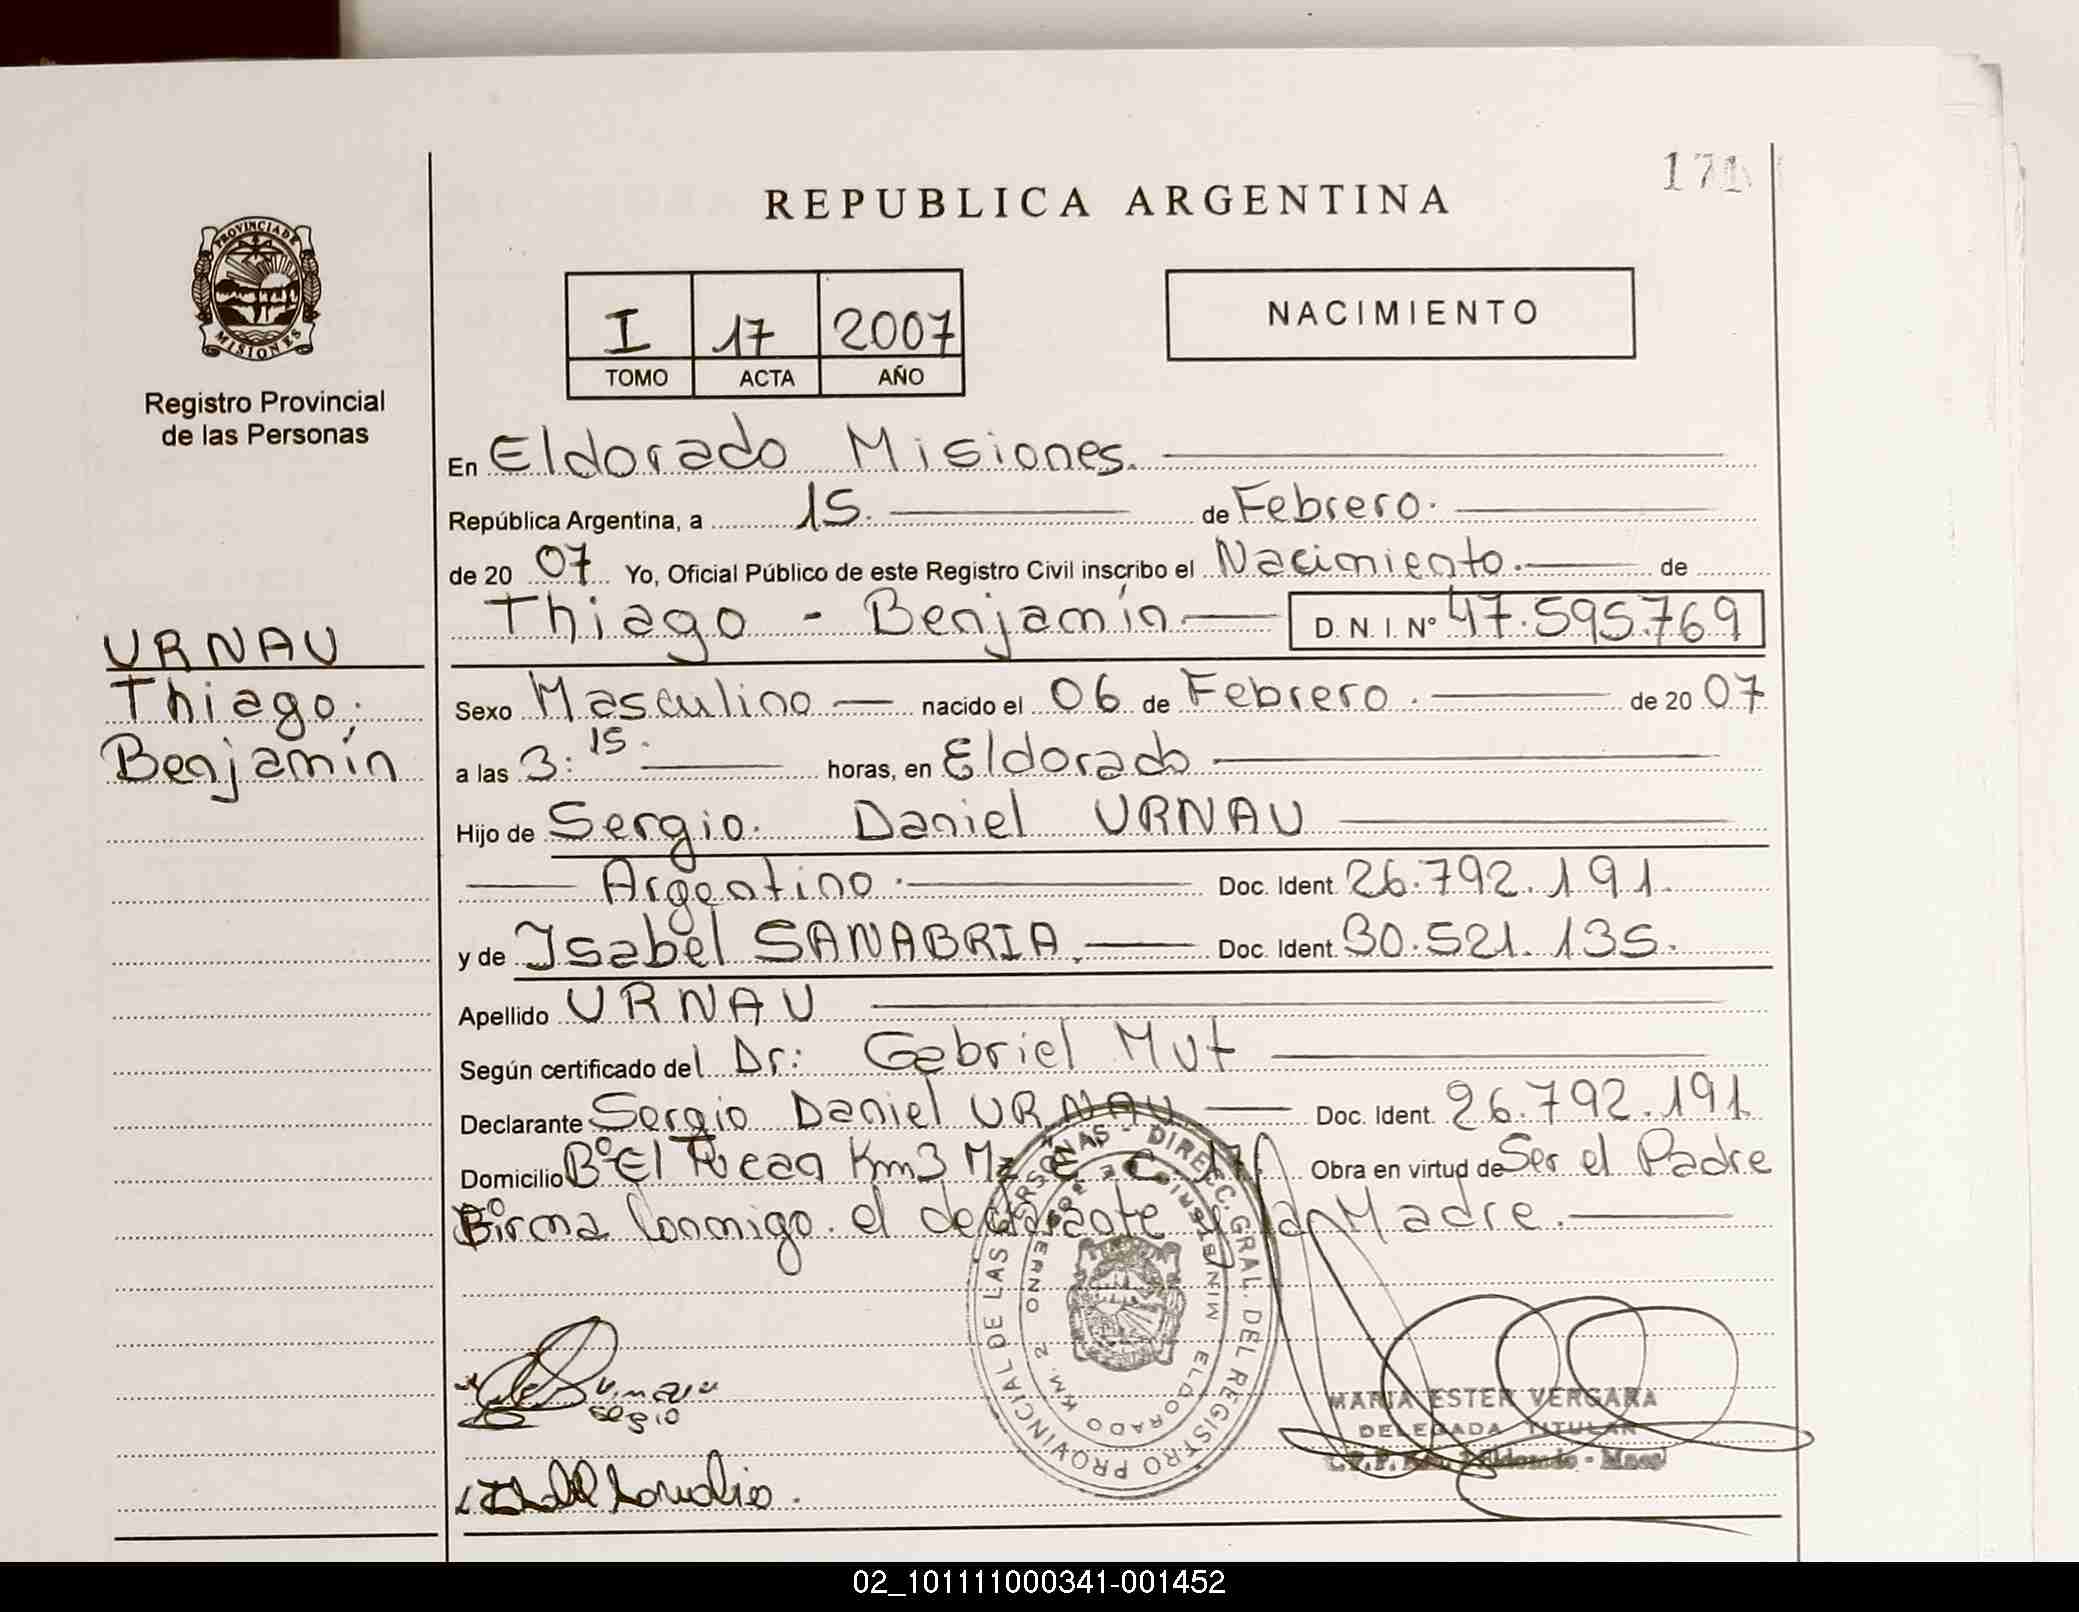 171
REPUBLICA ARGENTINA
PROVINCIA DE
MISIONES
Registro Provincial
de las Personas
I 17 2007
TOMO ACTA AÑO
NACIMIENTO
En Eldorado Misiones.
República Argentina, a 15. de Febrero.
de 2007 Yo, Oficial Público de este Registro Civil inscribo el Nacimiento. de
Thiago - Benjamín D.N.I. Nº 47.595.769
URNAU
Thiago.
Benjamín
Sexo Masculino nacido el 06 de Febrero. de 2007
a las 3:15. horas, en Eldorado
Hijo de Sergio. Daniel URNAU
Argentino. Doc. Ident. 26.792.191.
y de Isabel SANABRIA. Doc. Ident. 30.521.135.
Apellido URNAU
Según certificado del Dr: Gabriel Mut
Declarante Sergio Daniel URNAU Doc. Ident. 26.792.191
Domicilio Bº El Km3 Mz E C. Obra en virtud de Ser el Padre
Firma Conmigo. el declarante y la Madre.
DIREC. GRAL. DEL REGISTRO PROVINCIAL DE LAS PERSONAS -
MINISTERIO DE GOBIERNO
ELDORADO KM. 2
Urnau
Sergio
MARIA ESTER VERGARA
DELEGADA TITULAR
Eldorado - Mnes
02_101111000341-001452